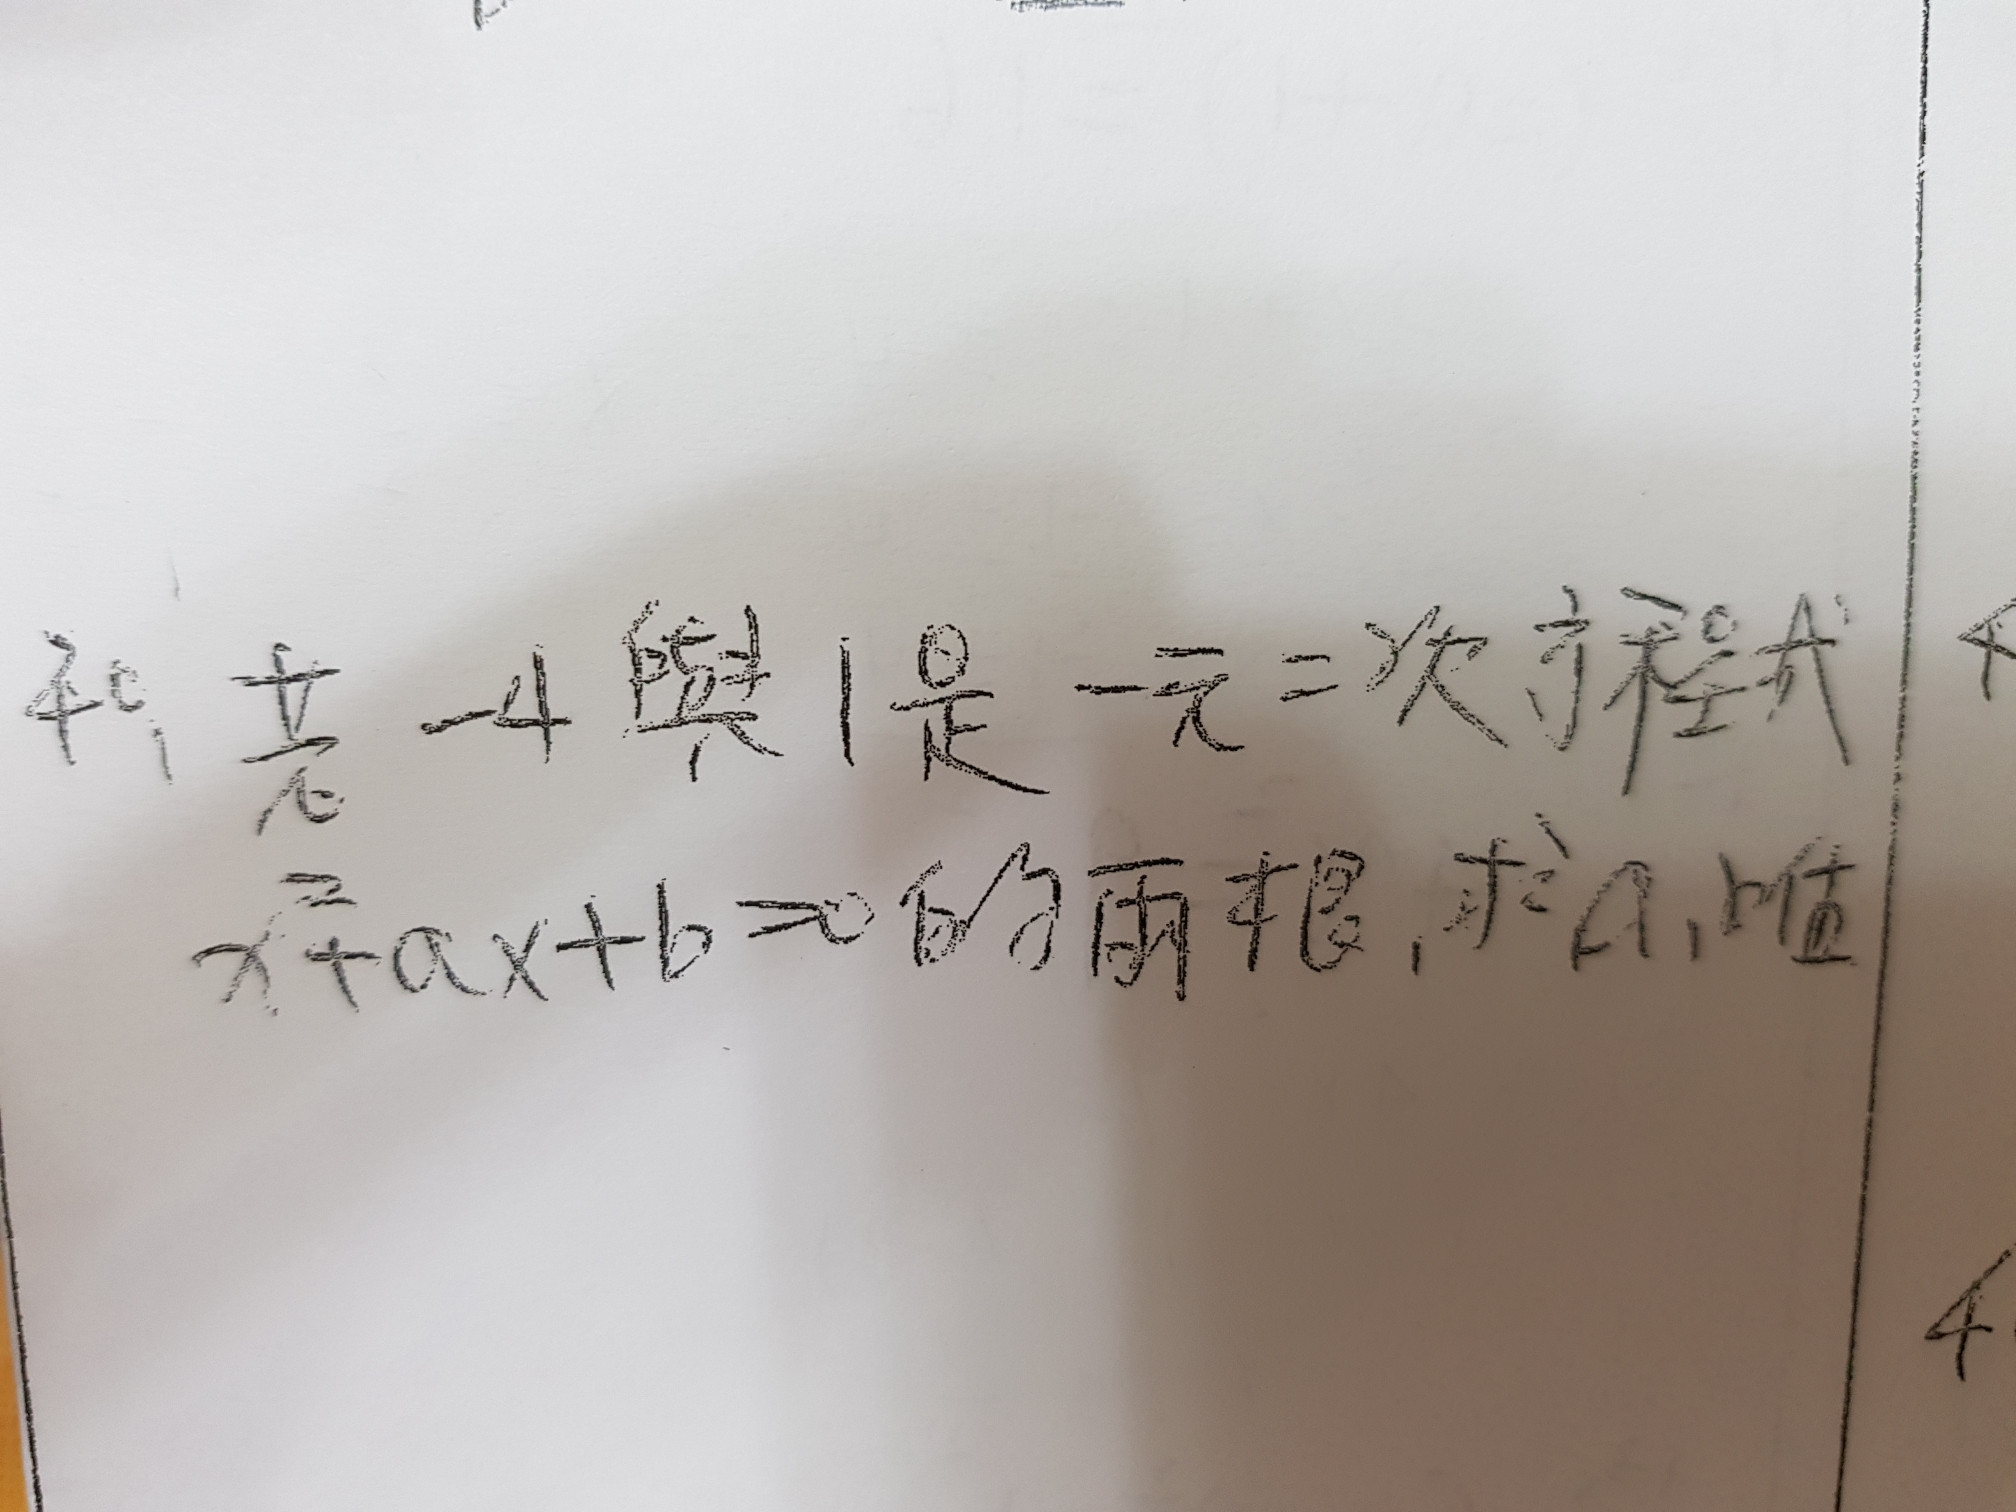 40, 若 -4 與 1 是一元二次方程式
x²+ax+b=0 的兩根,求a,b值